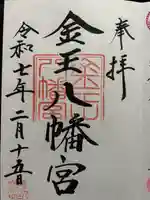 奉拝
金王八幡宮
令和七年二月十五日